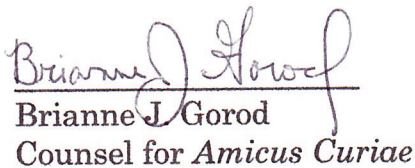 Brianne J. Gorod
Brianne J. Gorod
Counsel for Amicus Curiae